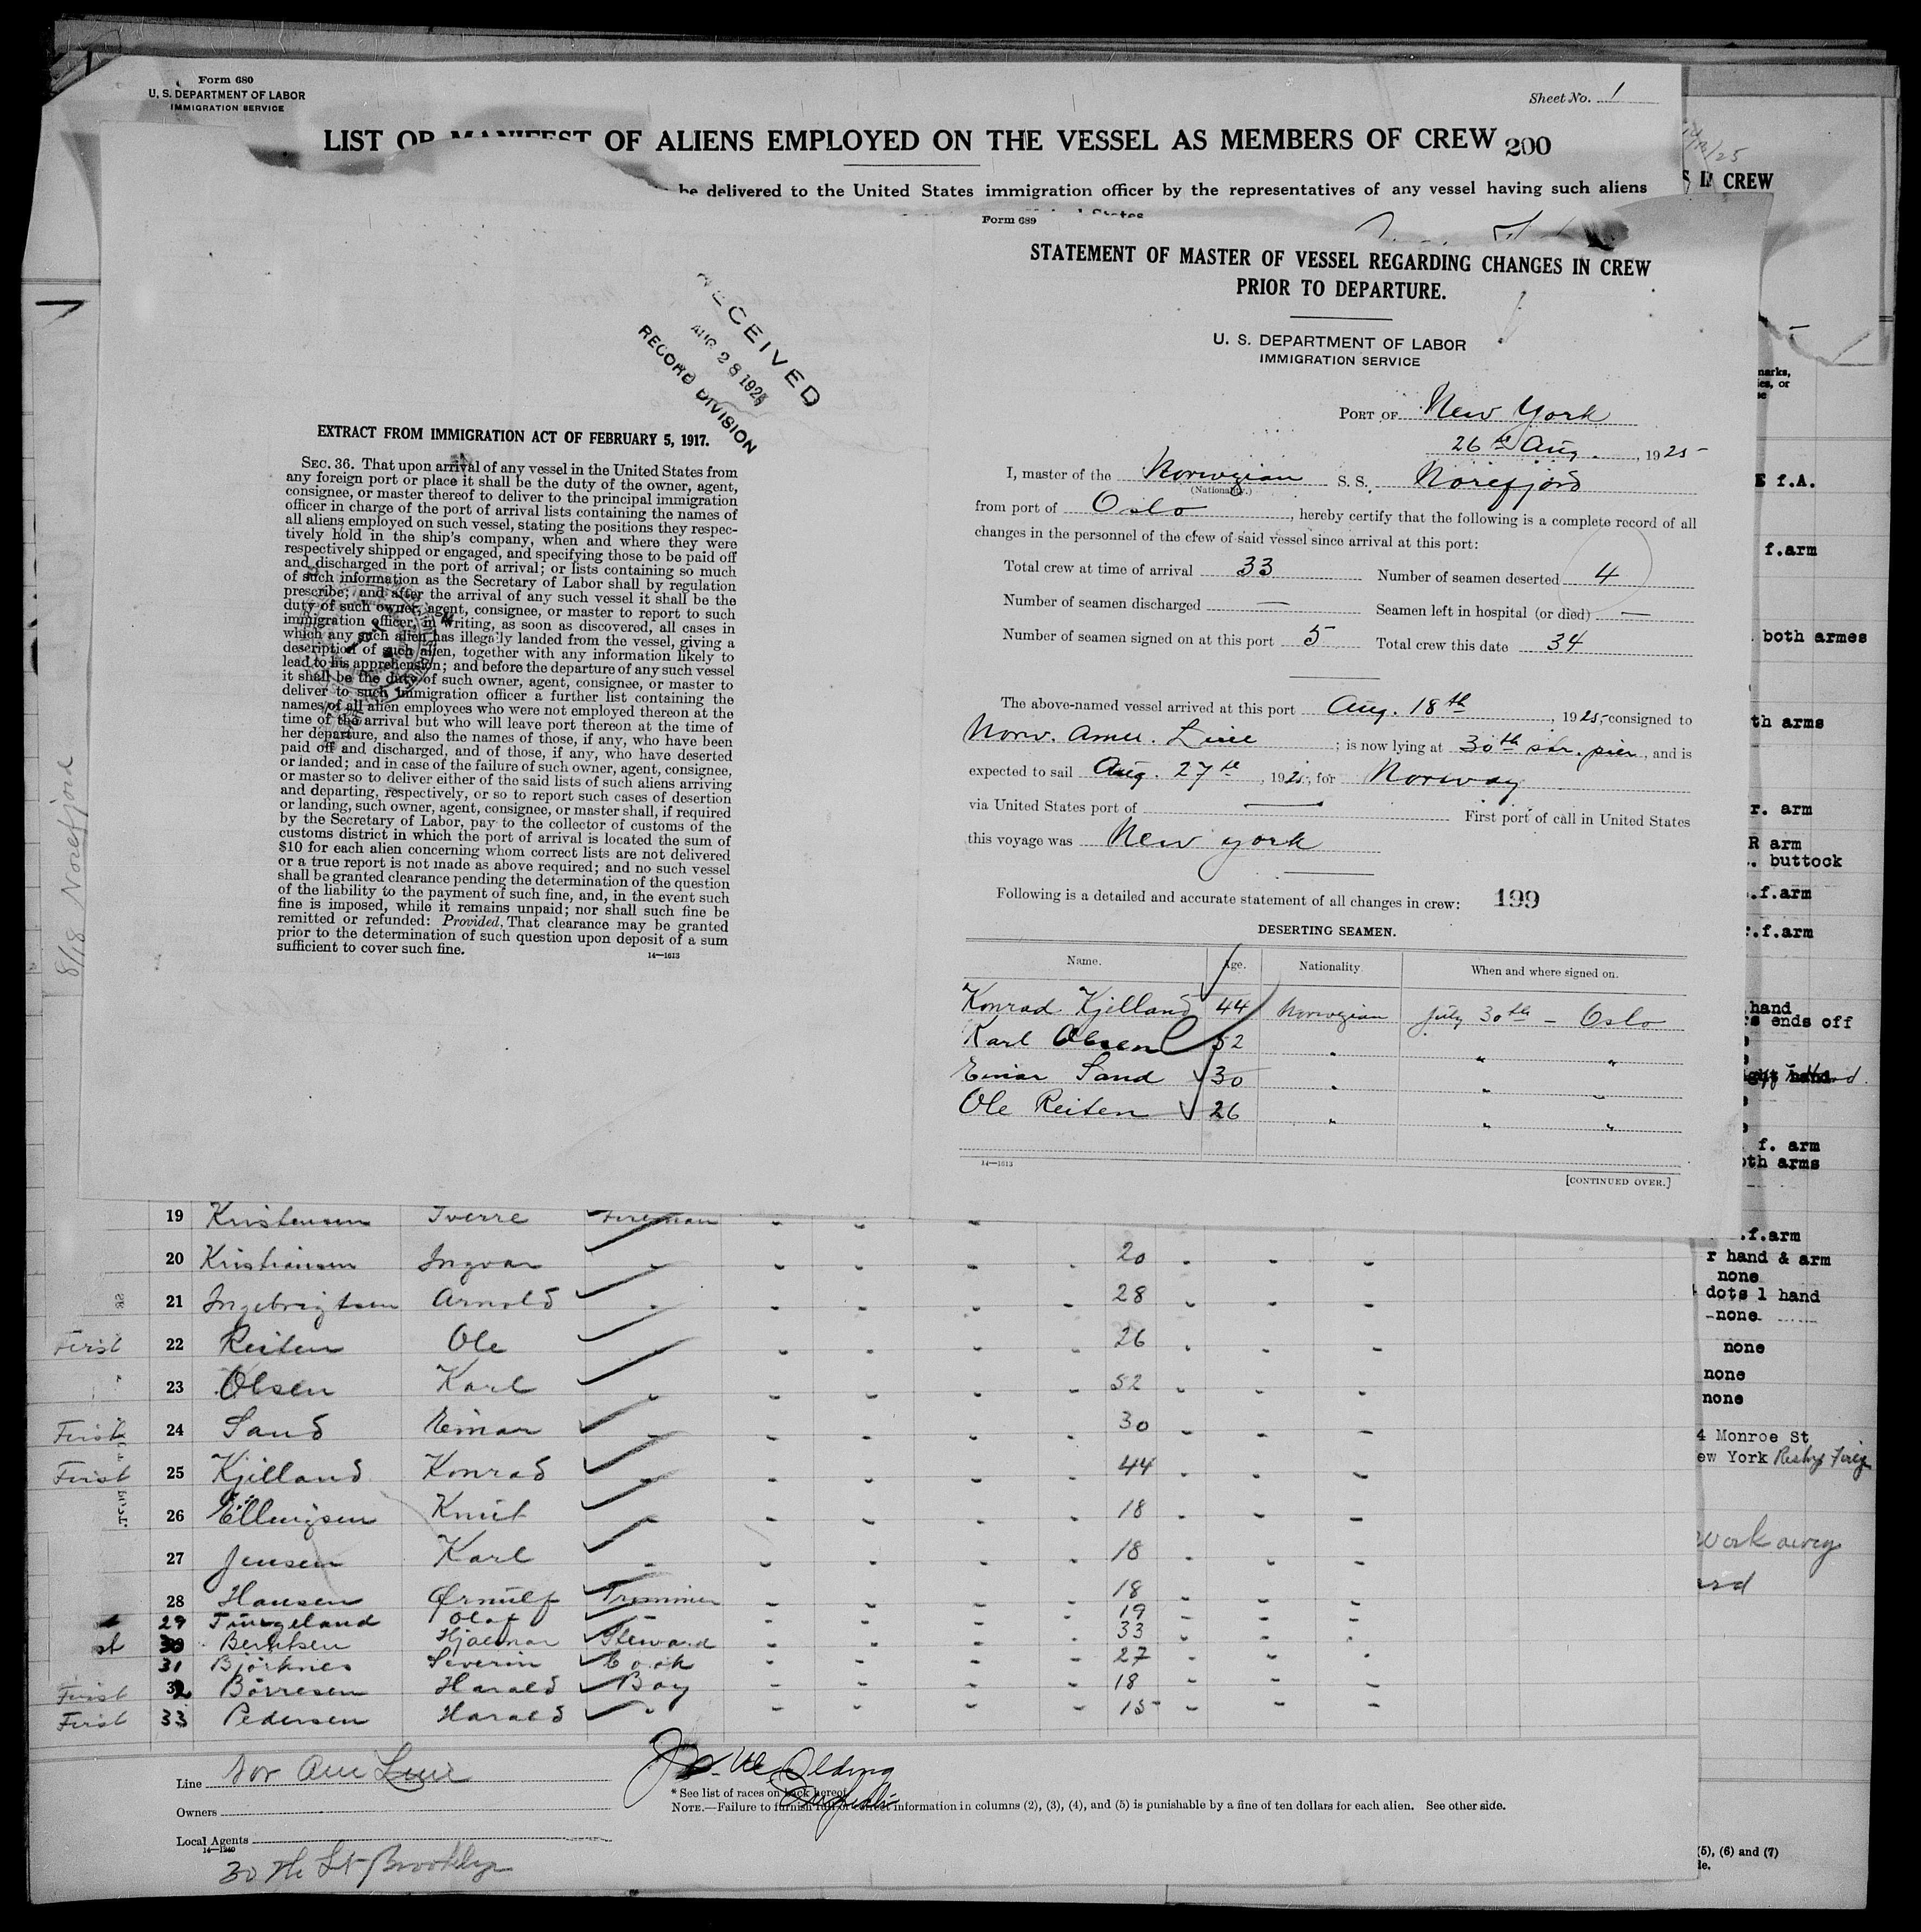 Form 680
U. S. DEPARTMENT OF LABOR
IMMIGRATION SERVICE
Sheet No. 1
LIST OR MANIFEST OF ALIENS EMPLOYED ON THE VESSEL AS MEMBERS OF CREW 200
be delivered to the United States immigration officer by the representatives of any vessel having such aliens
States
CREW
8/18 Norefjord
RECEIVED
AUG 28 1925
RECORD DIVISION
EXTRACT FROM IMMIGRATION ACT OF FEBRUARY 5, 1917.
SEC. 36. That upon arrival of any vessel in the United States from
any foreign port or place it shall be the duty of the owner, agent,
consignee, or master thereof to deliver to the principal immigration
officer in charge of the port of arrival lists containing the names of
all aliens employed on such vessel, stating the positions they respec-
tively hold in the ship's company, when and where they were
respectively shipped or engaged, and specifying those to be paid off
and discharged in the port of arrival; or lists containing so much
of such information as the Secretary of Labor shall by regulation
prescribe; and after the arrival of any such vessel it shall be the
duty of such owner, agent, consignee, or master to report to such
immigration officer, in writing, as soon as discovered, all cases in
which any such alien has illegally landed from the vessel, giving a
description of such alien, together with any information likely to
lead to his apprehension; and before the departure of any such vessel
it shall be the duty of such owner, agent, consignee, or master to
deliver to such immigration officer a further list containing the
names of all alien employees who were not employed thereon at the
time of the arrival but who will leave port thereon at the time of
her departure, and also the names of those, if any, who have been
paid off and discharged, and of those, if any, who have deserted
or landed; and in case of the failure of such owner, agent, consignee,
or master so to deliver either of the said lists of such aliens arriving
and departing, respectively, or so to report such cases of desertion
or landing, such owner, agent, consignee, or master shall, if required
by the Secretary of Labor, pay to the collector of customs of the
customs district in which the port of arrival is located the sum of
$10 for each alien concerning whom correct lists are not delivered
or a true report is not made as above required; and no such vessel
shall be granted clearance pending the determination of the question
of the liability to the payment of such fine, and, in the event such
fine is imposed, while it remains unpaid; nor shall such fine be
remitted or refunded: Provided, That clearance may be granted
prior to the determination of such question upon deposit of a sum
sufficient to cover such fine.
14—1613
Form 689
STATEMENT OF MASTER OF VESSEL REGARDING CHANGES IN CREW
PRIOR TO DEPARTURE.
U. S. DEPARTMENT OF LABOR
IMMIGRATION SERVICE
PORT OF New York
26th Aug. , 1925
I, master of the Norwegian S. S. Norefjord
(Nationality.)
from port of Oslo , hereby certify that the following is a complete record of all
changes in the personnel of the crew of said vessel since arrival at this port:
Total crew at time of arrival 33 Number of seamen deserted 4
Number of seamen discharged — Seamen left in hospital (or died) —
Number of seamen signed on at this port 5 Total crew this date 34
The above-named vessel arrived at this port Aug. 18th , 1925, consigned to
Norw. Amer. Line ; is now lying at 30th str. pier, and is
expected to sail Aug. 27th , 1925, for Norway
via United States port of — First port of call in United States
this voyage was New York
Following is a detailed and accurate statement of all changes in crew: 199
DESERTING SEAMEN.
Name. Age. Nationality When and where signed on.
Konrad Kjelland 44 Norwegian July 30th — Oslo
Karl Olsen 52 " " "
Einar Sand 30 " " "
Ole Reiten 26 " " "
14—1613
[CONTINUED OVER.]
19 Kristensen Sverre Fireman
20 Kristiansen Ingvar 20
21 Ingebrigtsen Arnold 28
First 22 Reiten Ole 26
23 Olsen Karl 52
First 24 Sand Einar 30
First 25 Kjelland Konrad 44
26 Ellingsen Knut 18
27 Jensen Karl 18
28 Hansen Ørnulf Trimmer 18
29 Tingeland Olaf 19
st 30 Berntsen Hjalmar Steward 33
31 Björknes Severin Cook 27
First 32 Börresen Harald Boy 18
First 33 Pedersen Harald 15
Line Nor Am Line
Owners
Local Agents
14—1240
30 the St Brooklyn
* See list of races on back hereof
NOTE.—Failure to furnish full or correct information in columns (2), (3), (4), and (5) is punishable by a fine of ten dollars for each alien. See other side.
marks,
or
f.A.
f.arm
both armes
th arms
r. arm
R arm
buttock
.f.arm
r.f.arm
hand
ends off
f. arm
oth arms
.f.arm
r hand & arm
none
dots l hand
-none-
none
none
none
4 Monroe St
ew York
work away
(5), (6) and (7)